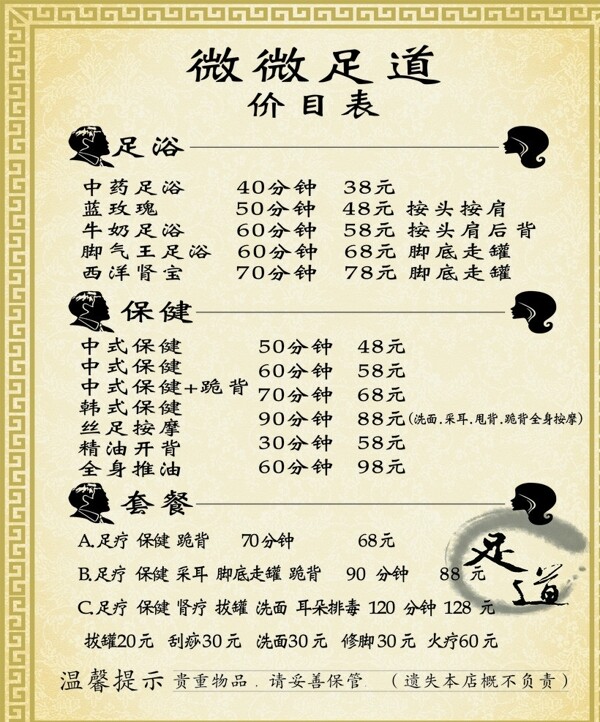 微微足道
价目表
足浴
中药足浴 40分钟 38元
蓝玫瑰 50分钟 48元 按头按肩
牛奶足浴 60分钟 58元 按头肩后背
脚气王足浴 60分钟 68元 脚底走罐
西洋肾宝 70分钟 78元 脚底走罐
保健
中式保健 50分钟 48元
中式保健 60分钟 58元
中式保健+跪背 70分钟 68元
韩式保健 90分钟 88元(洗面.采耳.甩背.跪背全身按摩)
丝足按摩
精油开背 30分钟 58元
全身推油 60分钟 98元
套餐
A.足疗 保健 跪背 70分钟 68元
B.足疗 保健 采耳 脚底走罐 跪背 90 分钟 88 元
C.足疗 保健 肾疗 拔罐 洗面 耳朵排毒 120 分钟 128 元
足道
拔罐20元 刮痧30元 洗面30元 修脚30元 火疗60元
温馨提示 贵重物品.请妥善保管.（遗失本店概不负责）